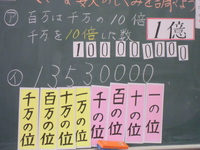 大きな数のしくみを調べよう
㋐ 百万は千万の10倍
千万を10倍した数
1億
100000000
㋑ 13530000
千万の位 百万の位 十万の位 一万の位 千の位 百の位 十の位 一の位